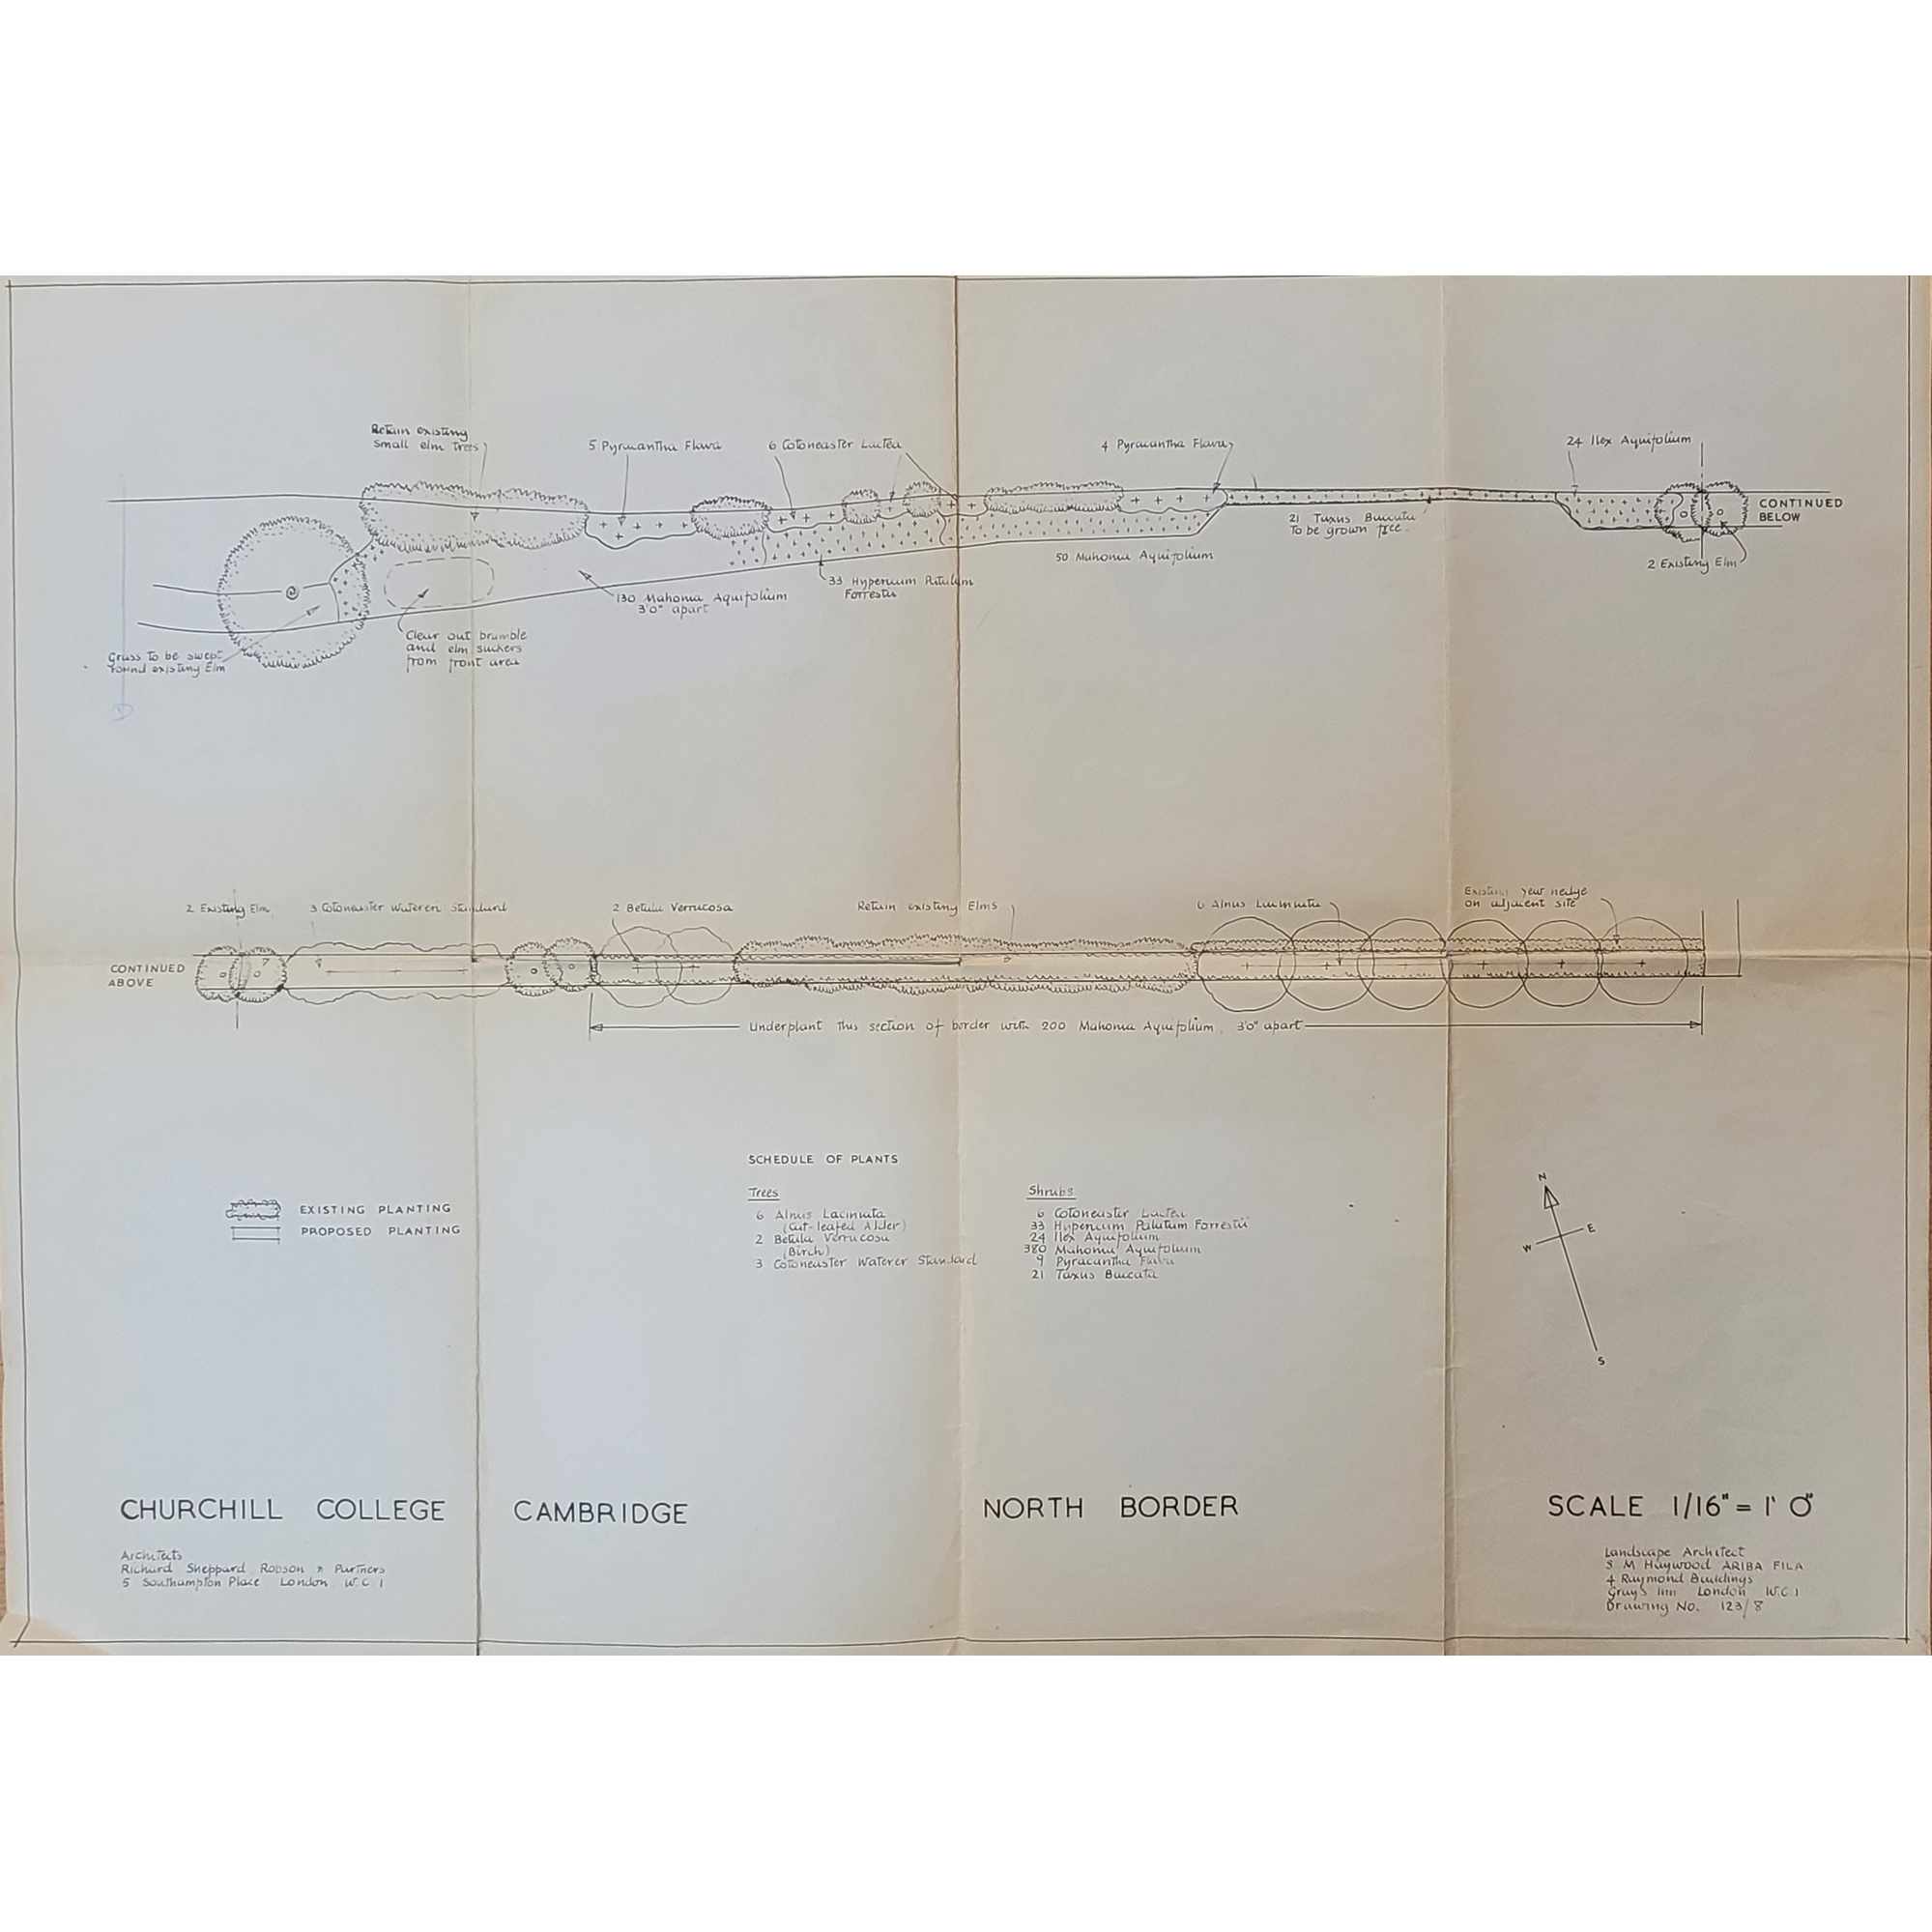 Retain existing
small elm trees
5 Pyracantha Flava
6 Cotoneaster Lactea
4 Pyracantha Flava
24 Ilex Aquifolium
CONTINUED
BELOW
21 Taxus Baccata
To be grown free.
2 Existing Elm
50 Mahonia Aquifolium
33 Hypericum Patulum
Forrestii
130 Mahonia Aquifolium
3'0" apart
Clear out bramble
and elm suckers
from front area
Grass to be swept
round existing Elm
D
2 Existing Elm
3 Cotoneaster Watereri Standard
2 Betula Verrucosa
Retain existing Elms
6 Alnus Laciniata
Existing yew hedge
on adjacent site
CONTINUED
ABOVE
Underplant this section of border with 200 Mahonia Aquifolium 3'0" apart
SCHEDULE OF PLANTS
Trees
6 Alnus Laciniata
(Cut-leafed Alder)
2 Betula Verrucosa
(Birch)
3 Cotoneaster Waterer Standard
Shrubs
6 Cotoneaster Lactea
33 Hypericum Patulum Forrestii
24 Ilex Aquifolium
380 Mahonia Aquifolium
9 Pyracantha Flava
21 Taxus Baccata
EXISTING PLANTING
PROPOSED PLANTING
N
E
W
S
CHURCHILL COLLEGE CAMBRIDGE
NORTH BORDER
SCALE 1/16" = 1' 0"
Architects
Richard Sheppard Robson & Partners
5 Southampton Place London W.C.1
Landscape Architect
S M Haywood ARIBA FILA
4 Raymond Buildings
Gray's Inn London W.C1
Drawing No. 123/8